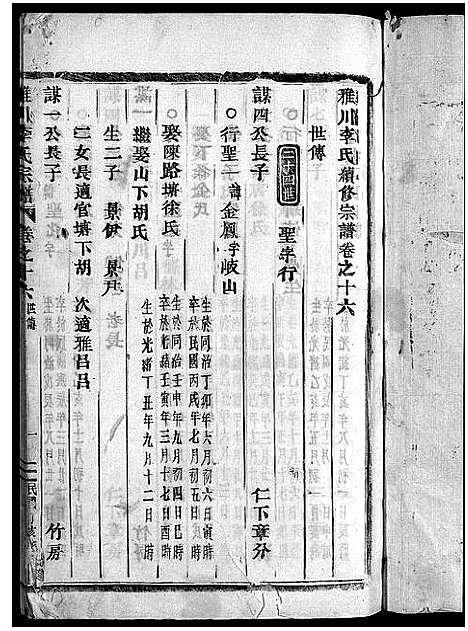 雅川李氏續修宗譜卷之十六
世傳
三十四世 聖字行
謀四公長子 仁下章分
○行聖子 諱金鳳字岐山 生於同治丁卯年六月初六日寅時
卒於民國丙戌年七月初五日戌時
○娶陳路塘徐氏 生於同治壬申年九月初四日巳時
卒於光緒壬寅年三月十七日酉時
繼娶山下胡氏 生於光緒丁丑年九月十二日 時
生二子 景伊 景尹
二女長適官塘下胡 次適雅呂呂
謀一公長子 竹房
雅川李氏宗譜 卷之十六 世傳 一